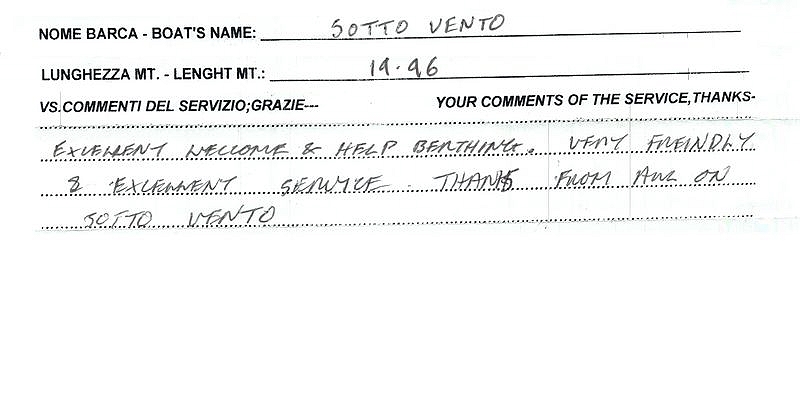 NOME BARCA - BOAT'S NAME: SOTTO VENTO
LUNGHEZZA MT. - LENGHT MT.: 19.96
VS.COMMENTI DEL SERVIZIO;GRAZIE--- YOUR COMMENTS OF THE SERVICE,THANKS-
EXCELLENT WELCOME & HELP BERTHING. VERY FREINDLY
& EXCELLENT SERVICE. THANKS FROM ALL ON
SOTTO VENTO